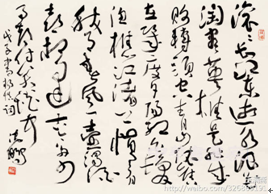 滚滚长江东逝水浪
花淘尽英雄是非成
败转头空青山依旧
在几度夕阳红白发
渔樵江渚上惯看
秋月春风一壶浊酒
喜相逢古今多少
事都付笑谈中